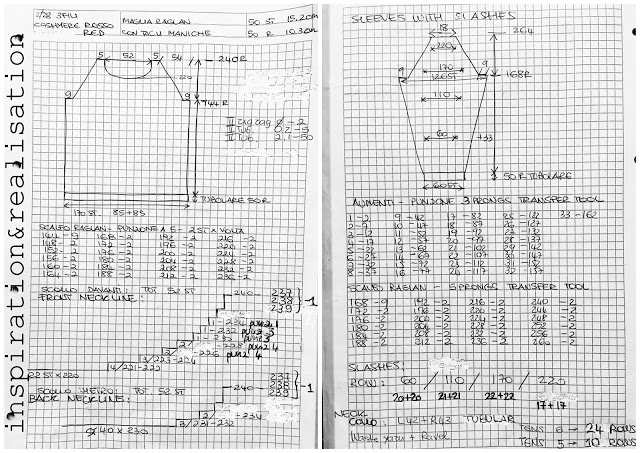 inspiration&realisation
1/28 3FILI
CASHMERE ROSSO
RED
MAGLIA RAGLAN
CON TAGLI MANICHE
50 ST 15.20cm
50 R 10.30cm
5 52 5 54 240R
220
9 9 144R
II zig zag 0-2
II Tub. 0.2-5
II Tub. 2.1-50
TUBOLARE 50R
170 ST. 85+85
SCALFO RAGLAN - PUNZONE A 5 - 2ST x VOLTA
144 -9 168 -2 192 -2 216 -2
148 -2 172 -2 196 -2 220 -2
152 -2 176 -2 200 -2 224 -2
156 -2 180 -2 204 -2 228 -2
160 -2 184 -2 208 -2 232 -2
164 -2 188 -2 212 -2 236 -2
SCOLLO DAVANTI: TOT 52 ST
FRONT NECKLINE:
240 237
239
239
-1
1 - 234
1 - 232
2 - 228
2 - 226
3/223-224
14/221-222
R22 ST x 220
SCOLLO DIETRO: TOT. 52 ST
BACK NECKLINE:
240 237
238
239
-1
2/ + 234
3/231-232
40 x 230
SLEEVES WITH SLASHES
18 264
220
9 170 9 168R
126ST
110
60 +33
50 R TUBOLARE
60ST
AUMENTI - PUNZONE 3 PRONGS TRANSFER TOOL
1-2 9-42 17-82 25-122 33-162
2-7 10-47 18-87 26-127
3-12 11-52 19-92 27-132
4-17 12-57 20-97 28-137
5-22 13-62 21-102 29-142
6-27 14-67 22-107 30-147
7-32 15-72 23-112 31-152
8-37 16-77 24-117 32-157
SCALFO RAGLAN - 5 PRONGS TRANSFER TOOL
168 -9 192 -2 216 -2 240 -2
172 -2 196 -2 220 -2 244 -2
176 -2 200 -2 224 -2 248 -2
180 -2 204 -2 228 -2 252 -2
184 -2 208 -2 232 -2 256 -2
188 -2 212 -2 236 -2 260 -2
SLASHES:
ROW: 60 / 110 / 170 / 220
20+20 21+21 22+22 17+17
NECK
COLLO: L42+R43 TUBULAR
Waste yarn + Ravel
TENS 6 → 24 ROWS
TENS 5 → 10 ROWS